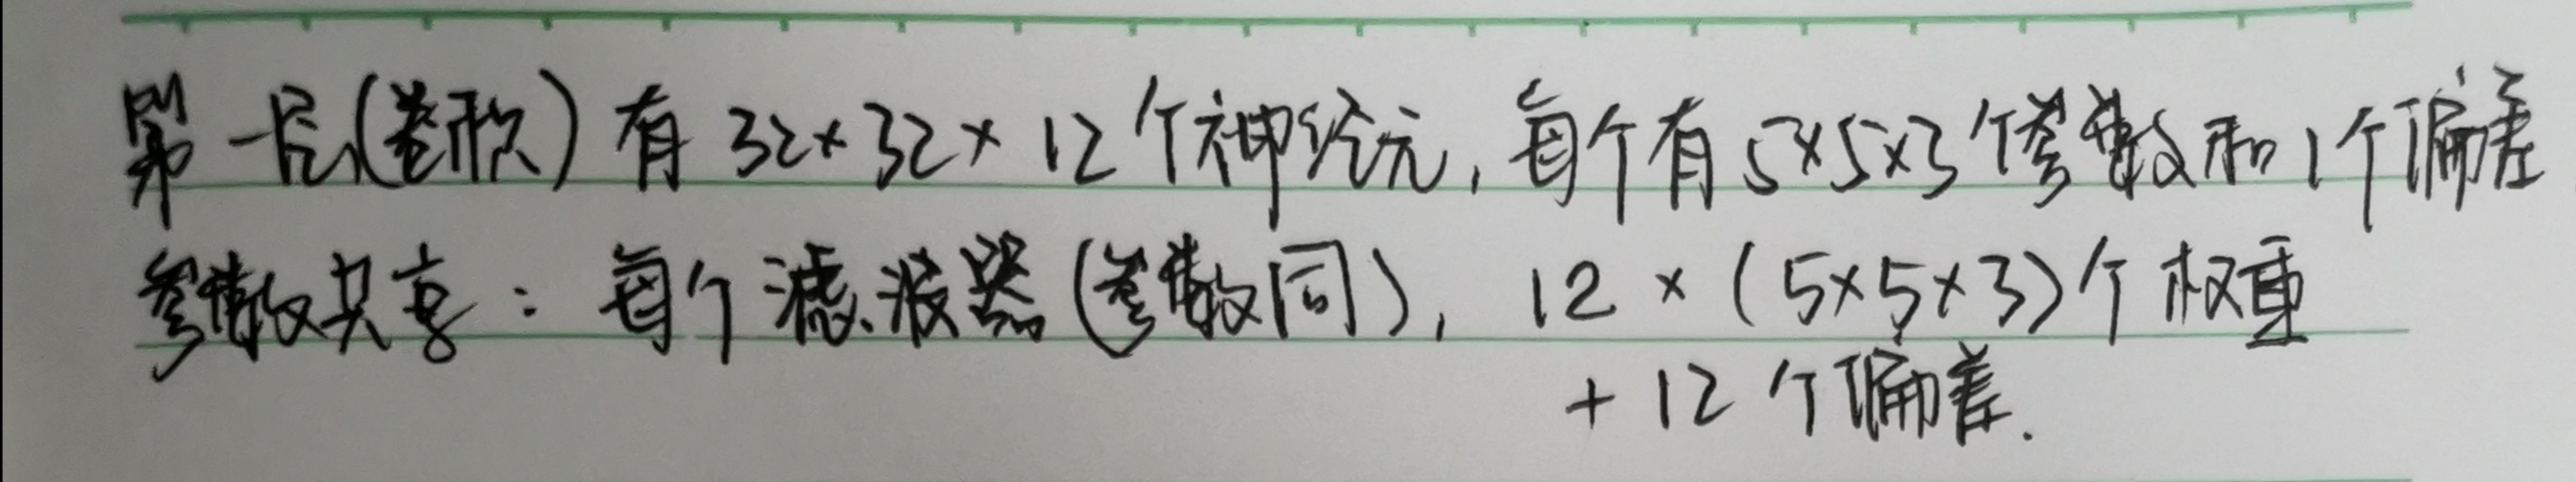 第一层(卷积)有 32×32×12个神经元,每个有5×5×3个参数和1个偏差
参数共享:每个滤波器(参数同),12×(5×5×3)个权重
+12个偏差.